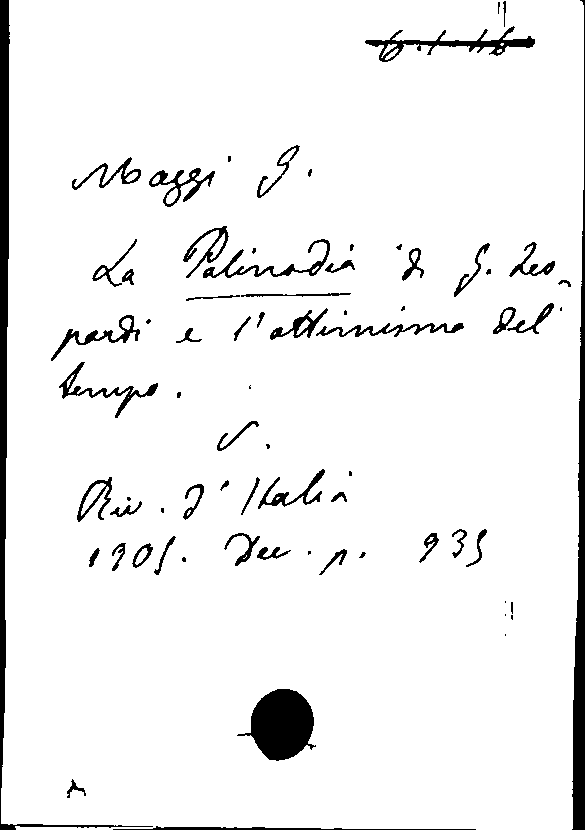 6.1.16
Maggi G.
La Palinodia di G. Leo-
pardi e l'ottimismo del
tempo.
V.
Riv. d'Italia
1905. Dec. p. 935